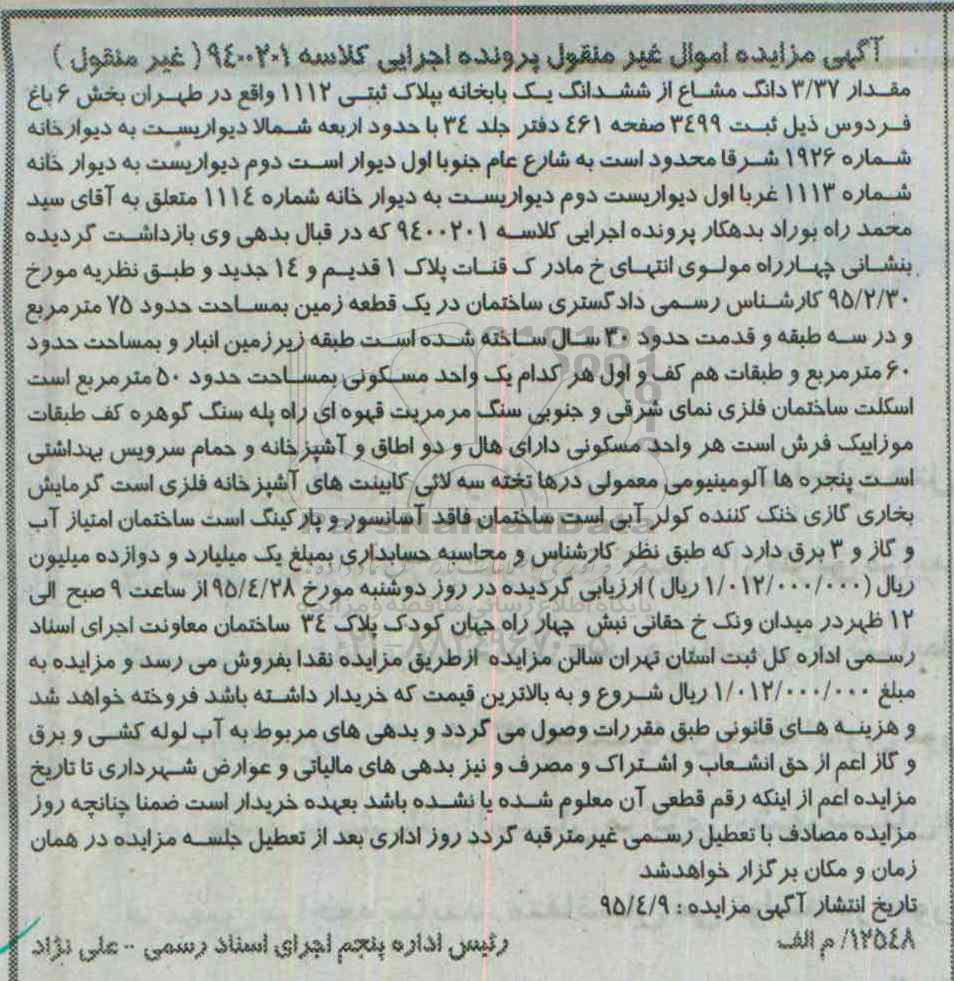 آگهی مزایده اموال غیر منقول پرونده اجرایی کلاسه ۹٤۰۰۲۰۱ ( غیر منقول )
مقدار ۳/۳۷ دانگ مشاع از ششدانگ یک بابخانه بپلاک ثبتی ۱۱۱۲ واقع در طهران بخش ۶ باغ
فردوس ذیل ثبت ۳٤۹۹ صفحه ٤۶۱ دفتر جلد ۳٤ با حدود اربعه شمالا دیواریست به دیوارخانه
شماره ۱۹۲۶ شرقا محدود است به شارع عام جنوبا اول دیوار است دوم دیواریست به دیوار خانه
شماره ۱۱۱۳ غربا اول دیواریست دوم دیواریست به دیوار خانه شماره ۱۱۱٤ متعلق به آقای سید
محمد راه بوراد بدهکار پرونده اجرایی کلاسه ۹٤۰۰۲۰۱ که در قبال بدهی وی بازداشت گردیده
بنشانی چهارراه مولوی انتهای خ مادر ک قنات پلاک ۱ قدیم و ۱٤ جدید و طبق نظریه مورخ
۹۵/۲/۳۰ کارشناس رسمی دادگستری ساختمان در یک قطعه زمین بمساحت حدود ۷۵ مترمربع
و در سه طبقه و قدمت حدود ۳۰ سال ساخته شده است طبقه زیرزمین انبار و بمساحت حدود
۶۰ مترمربع و طبقات هم کف و اول هر کدام یک واحد مسکونی بمساحت حدود ۵۰ مترمربع است
اسکلت ساختمان فلزی نمای شرقی و جنوبی سنگ مرمریت قهوه ای راه پله سنگ گوهره کف طبقات
موزاییک فرش است هر واحد مسکونی دارای هال و دو اطاق و آشپزخانه و حمام سرویس بهداشتی
است پنجره ها آلومینیومی معمولی درها تخته سه لائی کابینت های آشپزخانه فلزی است گرمایش
بخاری گازی خنک کننده کولر آبی است ساختمان فاقد آسانسور و پارکینگ است ساختمان امتیاز آب
و گاز و ۳ برق دارد که طبق نظر کارشناس و محاسبه حسابداری بمبلغ یک میلیارد و دوازده میلیون
ریال (۱/۰۱۲/۰۰۰/۰۰۰ ریال ) ارزیابی گردیده در روز دوشنبه مورخ ۹۵/٤/۲۸ از ساعت ۹ صبح الی
۱۲ ظهر در میدان ونک خ حقانی نبش چهار راه جهان کودک پلاک ۳٤ ساختمان معاونت اجرای اسناد
رسمی اداره کل ثبت استان تهران سالن مزایده ازطریق مزایده نقدا بفروش می رسد و مزایده به
مبلغ ۱/۰۱۲/۰۰۰/۰۰۰ ریال شروع و به بالاترین قیمت که خریدار داشته باشد فروخته خواهد شد
و هزینه های قانونی طبق مقررات وصول می گردد و بدهی های مربوط به آب لوله کشی و برق
و گاز اعم از حق انشعاب و اشتراک و مصرف و نیز بدهی های مالیاتی و عوارض شهرداری تا تاریخ
مزایده اعم از اینکه رقم قطعی آن معلوم شده یا نشده باشد بعهده خریدار است ضمنا چنانچه روز
مزایده مصادف با تعطیل رسمی غیرمترقبه گردد روز اداری بعد از تعطیل جلسه مزایده در همان
زمان و مکان برگزار خواهدشد
تاریخ انتشار آگهی مزایده : ۹۵/٤/۹
۱۲۵٤۸/ م الف
رئیس اداره پنجم اجرای اسناد رسمی -- علی نژاد